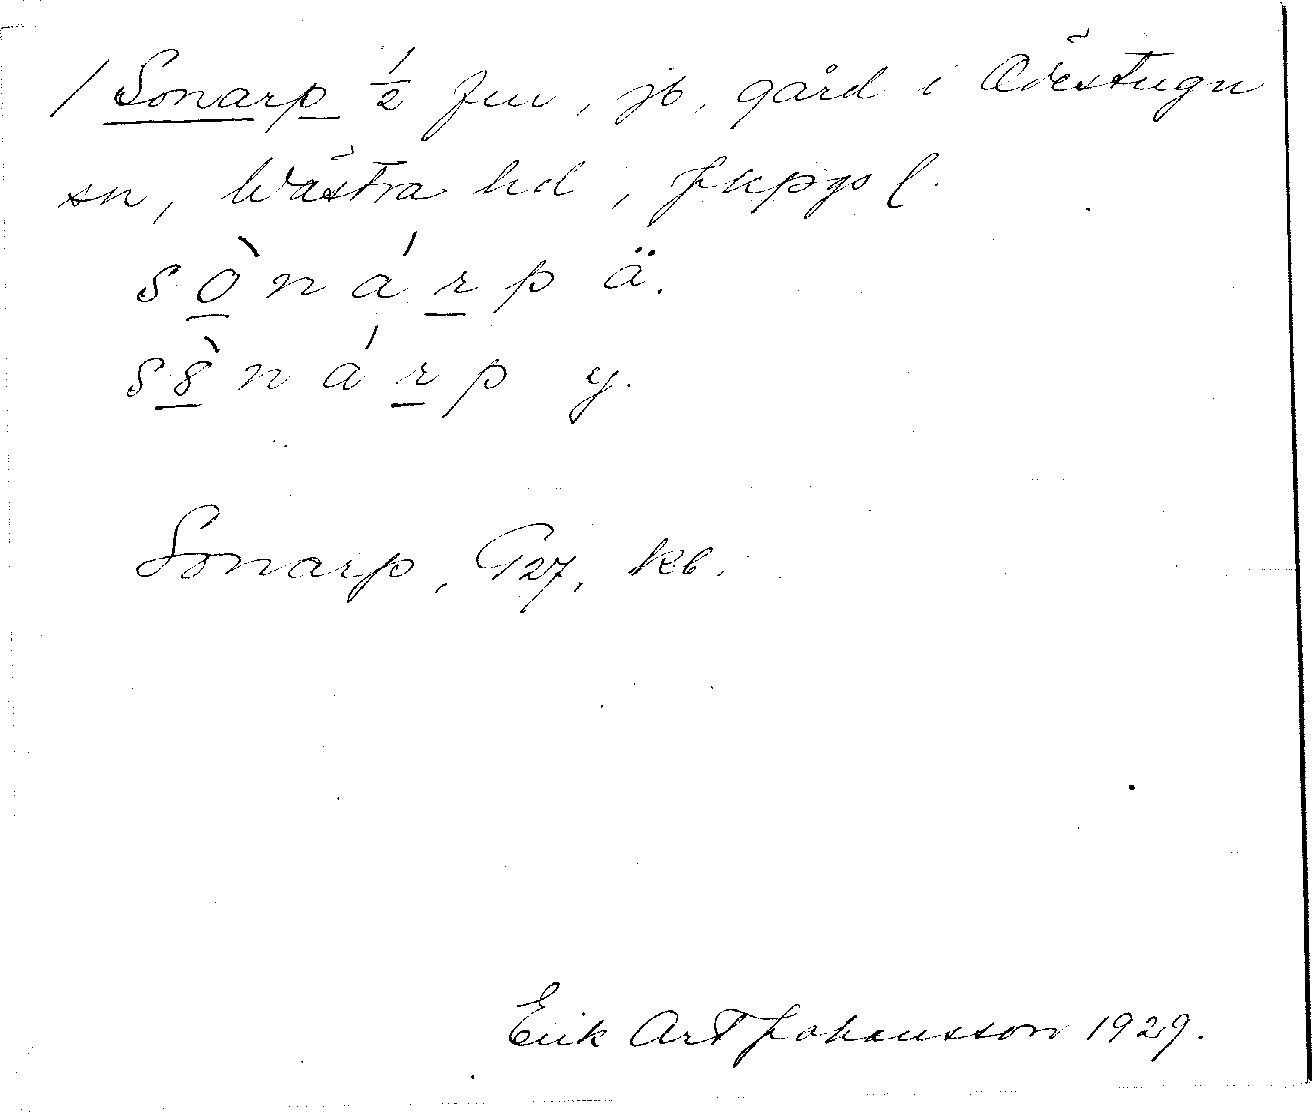 / Sonarp ½ fm, jb, gård i Ödestugu
sn, Västra hd, Jkpgs l.
sònárp ä.
s8̀nárp y.
Sonarp, G27, kb.
Erik Art Johansson 1929.